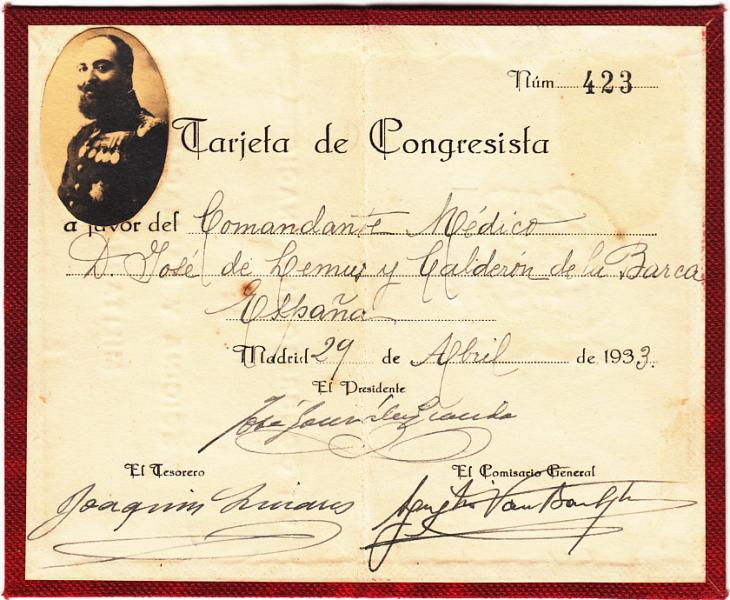 Núm. 423
Tarjeta de Congresista
a favor del Comandante Médico
D. José de Lemus y Calderón de la Barca
España
Madrid 29 de Abril de 1933.
El Presidente
José González Granda
El Tesorero
El Comisario General
Joaquin Linares